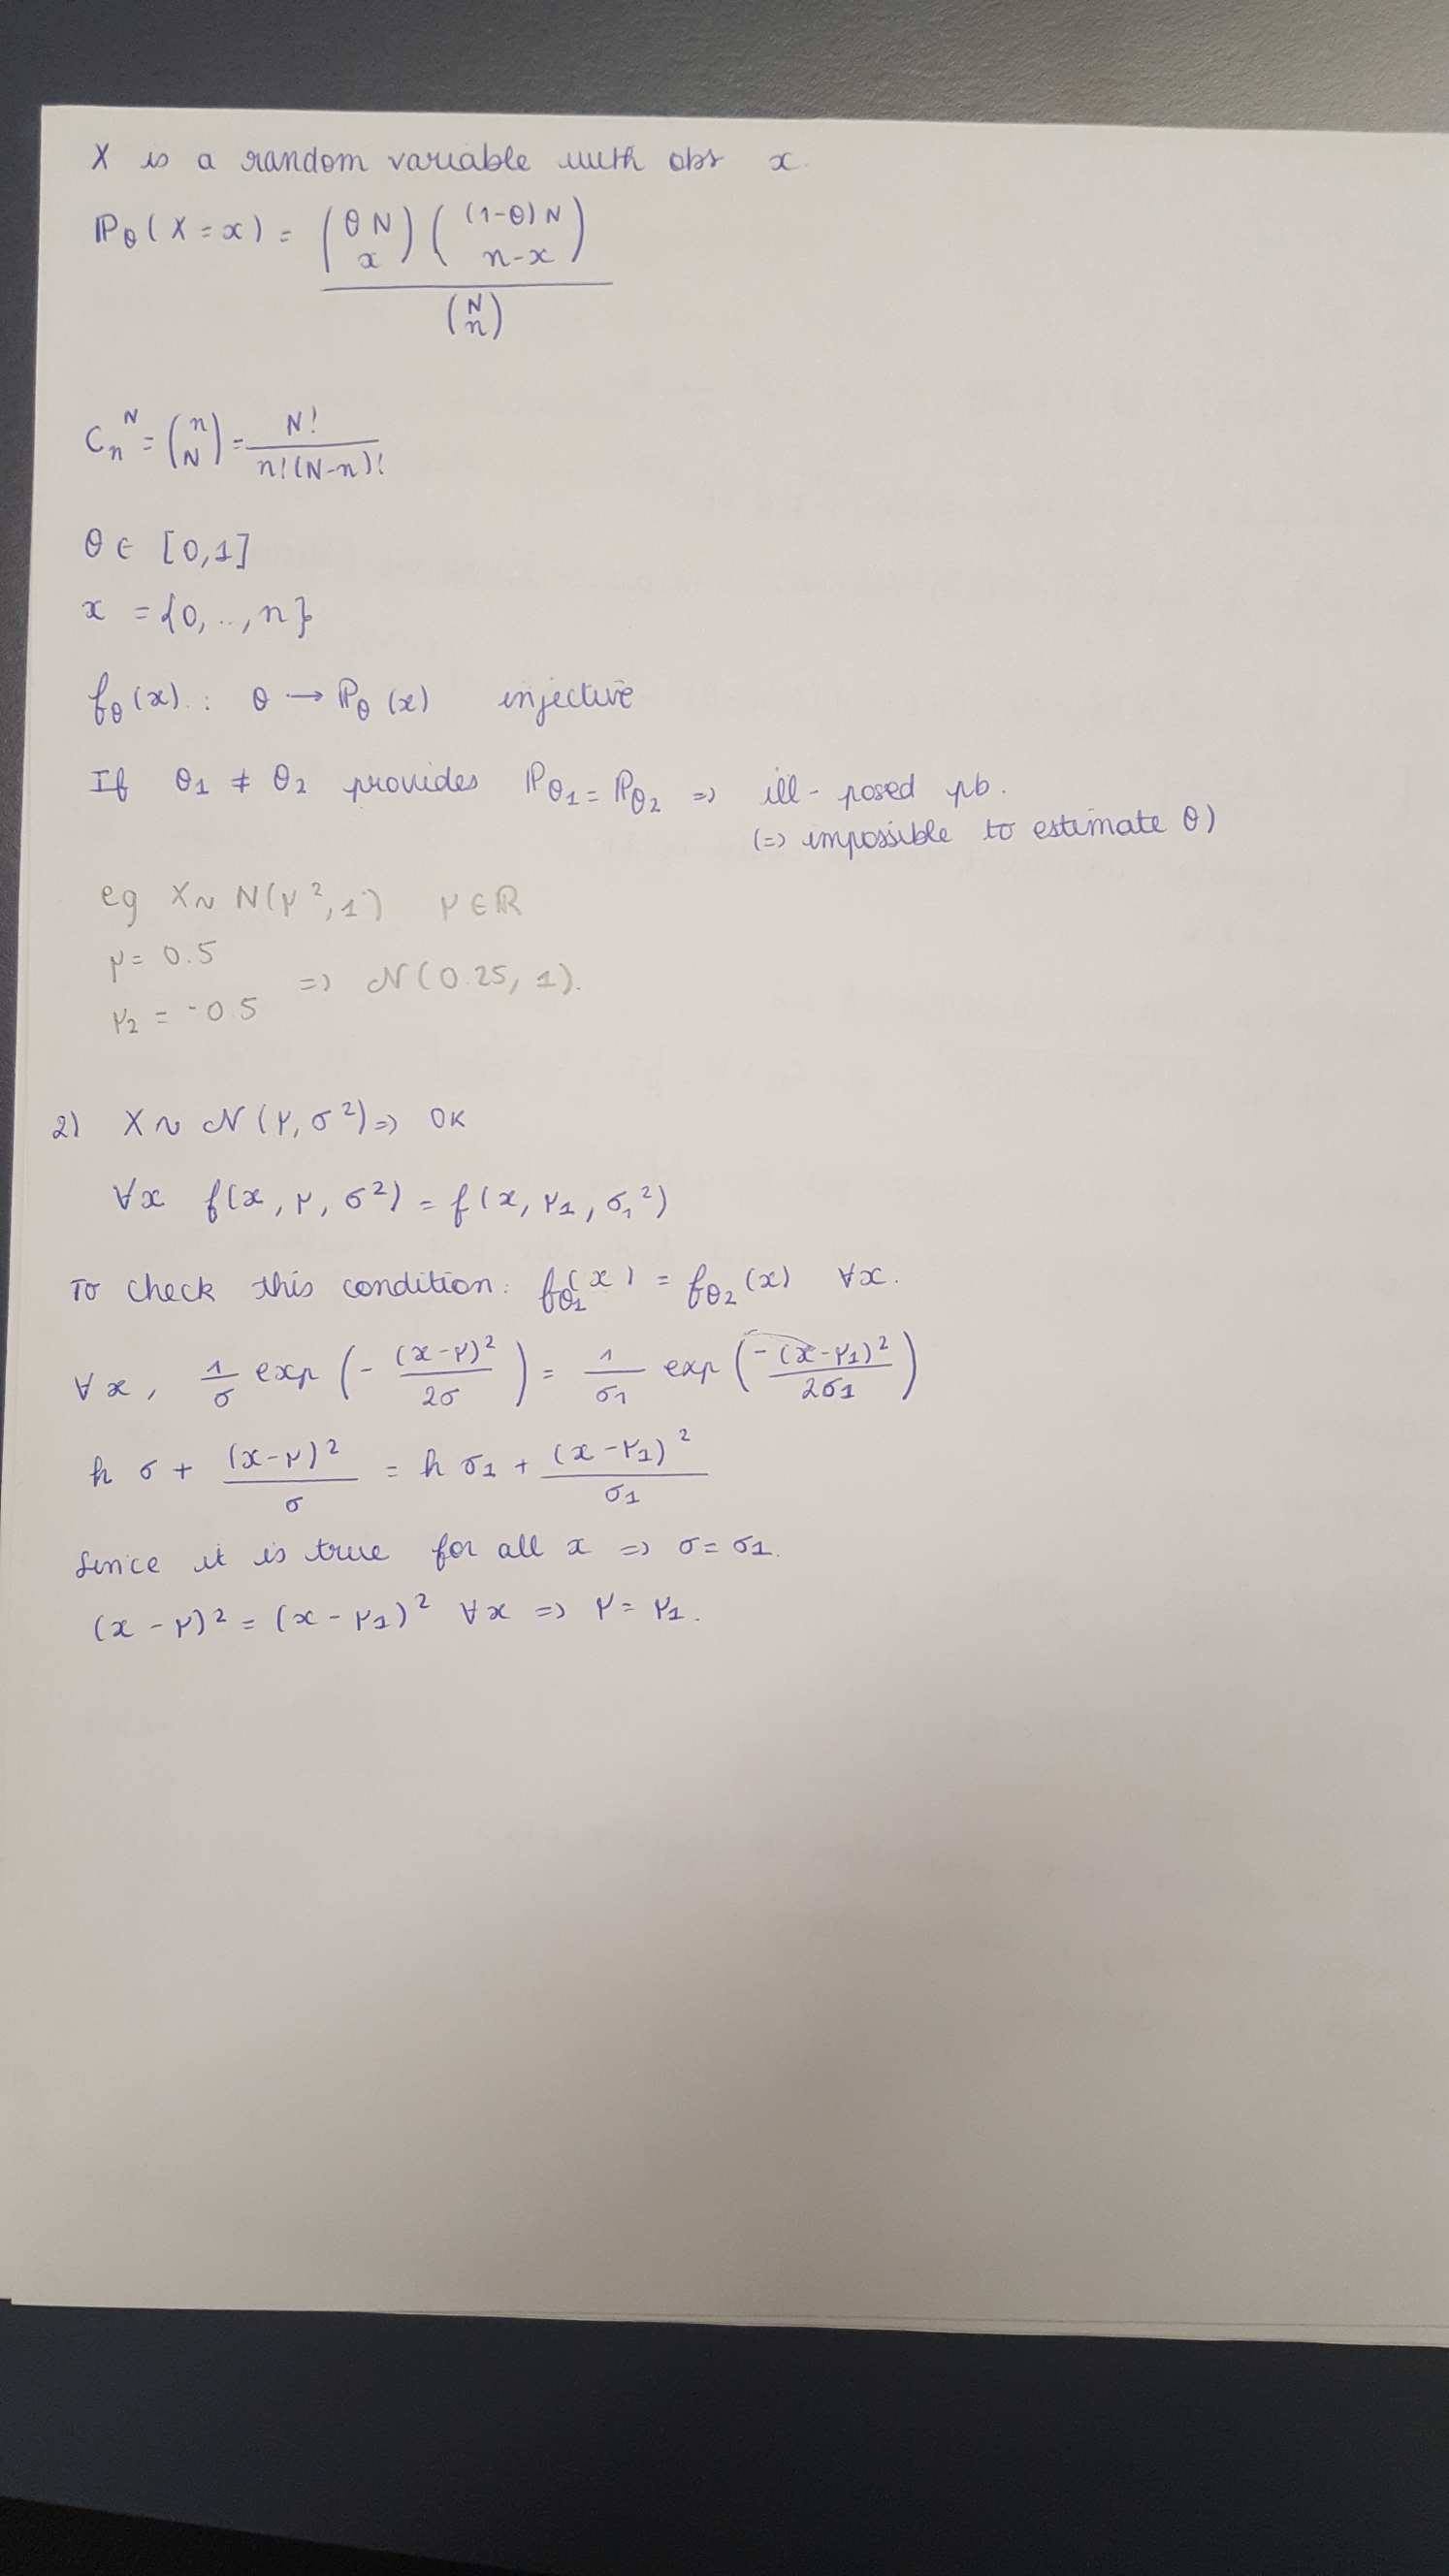 X is a random variable with obs x.
ℙθ(X=x) = (θN x)((1-θ)N n-x) / (N n)
Cₙᴺ = (n N) = N! / n!(N-n)!
θ ∈ [0,1]
x = {0,..,n}
fθ(x) : θ → ℙθ(x) injective
If θ1 ≠ θ2 provides ℙθ1 = ℙθ2 => ill-posed pb.
(=> impossible to estimate θ)
eg X ~ N(μ², 1) μ ∈ ℝ
μ = 0.5
=> N(0.25, 1).
μ2 = -0.5
2) X ~ N(μ, σ²) => OK
∀x f(x, μ, σ²) = f(x, μ1, σ1²)
To check this condition: fθ1(x) = fθ2(x) ∀x.
∀x, 1/σ exp(- (x-μ)²/2σ) = 1/σ1 exp(-(x-μ1)²/2σ1)
h σ + (x-μ)²/σ = h σ1 + (x-μ1)²/σ1
Since it is true for all x => σ = σ1.
(x-μ)² = (x-μ1)² ∀x => μ = μ1.